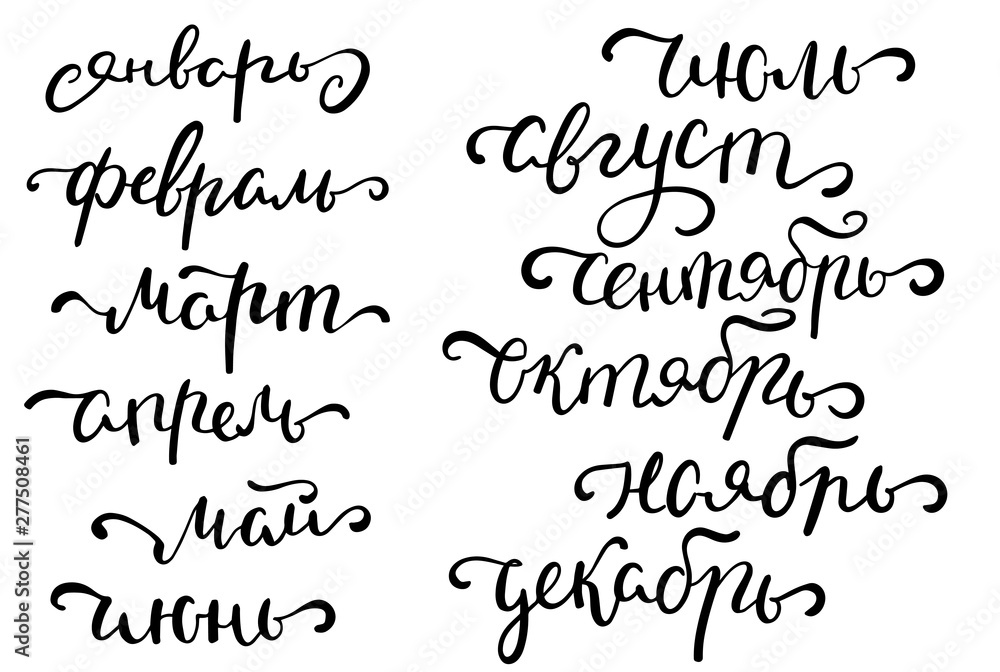 январь
февраль
март
апрель
май
июнь
июль
август
сентябрь
октябрь
ноябрь
декабрь
Adobe Stock | #277508461